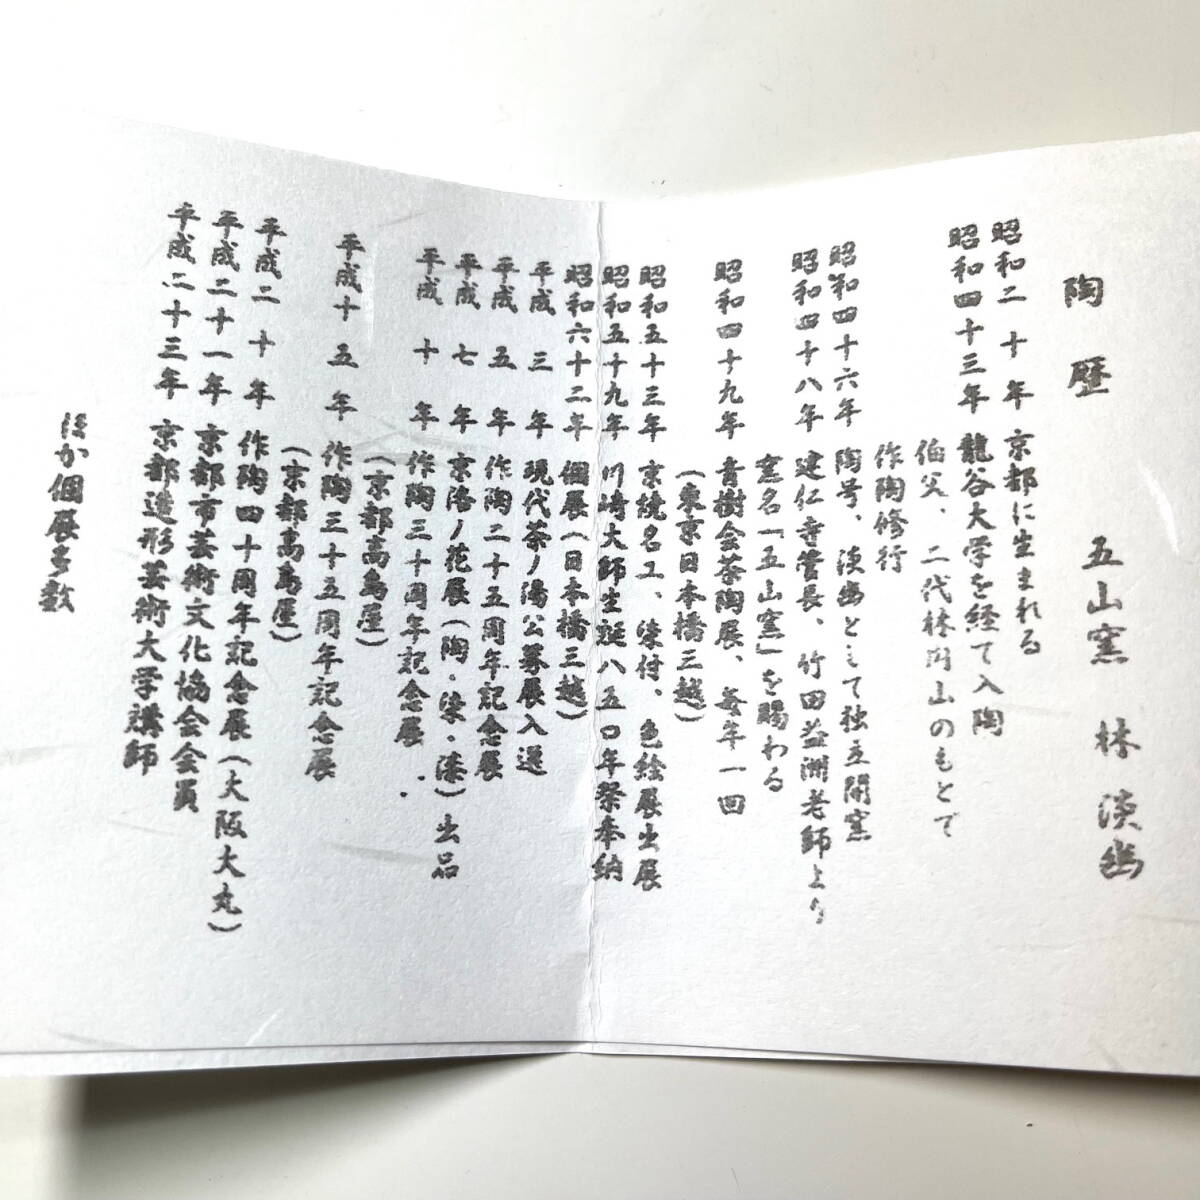 陶歴 五山窯 林淡幽
昭和二十年 京都に生まれる
昭和四十三年 龍谷大学を経て入陶
伯父、二代林円山のもとで
作陶修行
昭和四十六年 陶号、淡幽として独立開窯
昭和四十八年 建仁寺管長、竹田益洲老師より
窯名「五山窯」を賜わる
昭和四十九年 青樹会茶陶展、毎年一回
(東京日本橋三越)
昭和五十三年 京焼名工、染付、色絵展出展
昭和五十九年 川崎大師生誕八五〇年祭奉納
昭和六十二年 個展(日本橋三越)
平成三年 現代茶ノ湯公募展入選
平成五年 作陶二十五周年記念展
平成七年 京洛ノ花展(陶・染・漆)出品
平成十年 作陶三十周年記念展
(京都高島屋)
平成十五年 作陶三十五周年記念展
(京都高島屋)
平成二十年 作陶四十周年記念展(大阪大丸)
平成二十一年 京都市芸術文化協会会員
平成二十三年 京都造形芸術大学講師
ほか個展多数